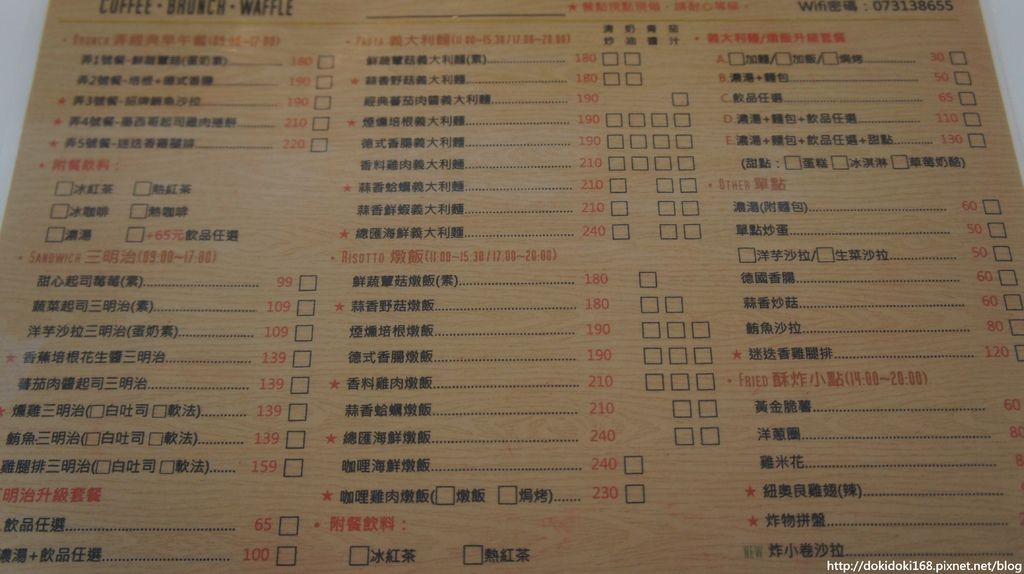 COFFEE · BRUNCH · WAFFLE
★ 餐點現點現做，請耐心等候。
Wifi密碼：073138655
BRUNCH 弄經典早午餐(09:00~17:00)
弄1號餐-鮮蔬蕈菇(蛋奶素) 180
弄2號餐-培根+德式香腸 190
★ 弄3號餐-招牌鮪魚沙拉 190
★ 弄4號餐-墨西哥起司雞肉捲餅 210
★ 弄5號餐-迷迭香雞腿排 220
附餐飲料：
冰紅茶 熱紅茶
冰咖啡 熱咖啡
濃湯 +65元飲品任選
SANDWICH 三明治(09:00~17:00)
甜心起司莓莓(素) 99
蔬菜起司三明治(素) 109
洋芋沙拉三明治(蛋奶素) 109
★ 香蕉培根花生醬三明治 139
蕃茄肉醬起司三明治 139
★ 燻雞三明治(白吐司 軟法) 139
鮪魚三明治(白吐司 軟法) 139
雞腿排三明治(白吐司 軟法) 159
明治升級套餐
飲品任選 65
濃湯+飲品任選 100
PASTA 義大利麵(11:00~15:30/17:00~20:00)
清炒 奶油 青醬 茄汁
鮮蔬蕈菇義大利麵(素) 180
★ 蒜香野菇義大利麵 180
經典蕃茄肉醬義大利麵 190
★ 煙燻培根義大利麵 190
德式香腸義大利麵 190
香料雞肉義大利麵 210
★ 蒜香蛤蠣義大利麵 210
蒜香鮮蝦義大利麵 210
★ 總匯海鮮義大利麵 240
RISOTTO 燉飯(11:00~15:30/17:00~20:00)
鮮蔬蕈菇燉飯(素) 180
★ 蒜香野菇燉飯 180
煙燻培根燉飯 190
德式香腸燉飯 190
★ 香料雞肉燉飯 210
蒜香蛤蠣燉飯 210
★ 總匯海鮮燉飯 240
咖哩海鮮燉飯 240
★ 咖哩雞肉燉飯(燉飯 焗烤) 230
附餐飲料：
冰紅茶 熱紅茶
義大利麵/燉飯升級套餐
A.加麵/加飯/焗烤 30
B.濃湯+麵包 50
C.飲品任選 65
D.濃湯+麵包+飲品任選 110
E.濃湯+麵包+飲品任選+甜點 130
(甜點：蛋糕 冰淇淋 草莓奶酪)
OTHER 單點
濃湯(附麵包) 60
單點炒蛋 50
洋芋沙拉/生菜沙拉 50
德國香腸 60
蒜香炒菇 60
鮪魚沙拉 80
★ 迷迭香雞腿排 120
FRIED 酥炸小點(14:00~20:00)
黃金脆薯 60
洋蔥圈
雞米花
★ 紐奧良雞翅(辣)
★ 炸物拼盤
NEW 炸小卷沙拉
http://dokidoki168.pixnet.net/blog